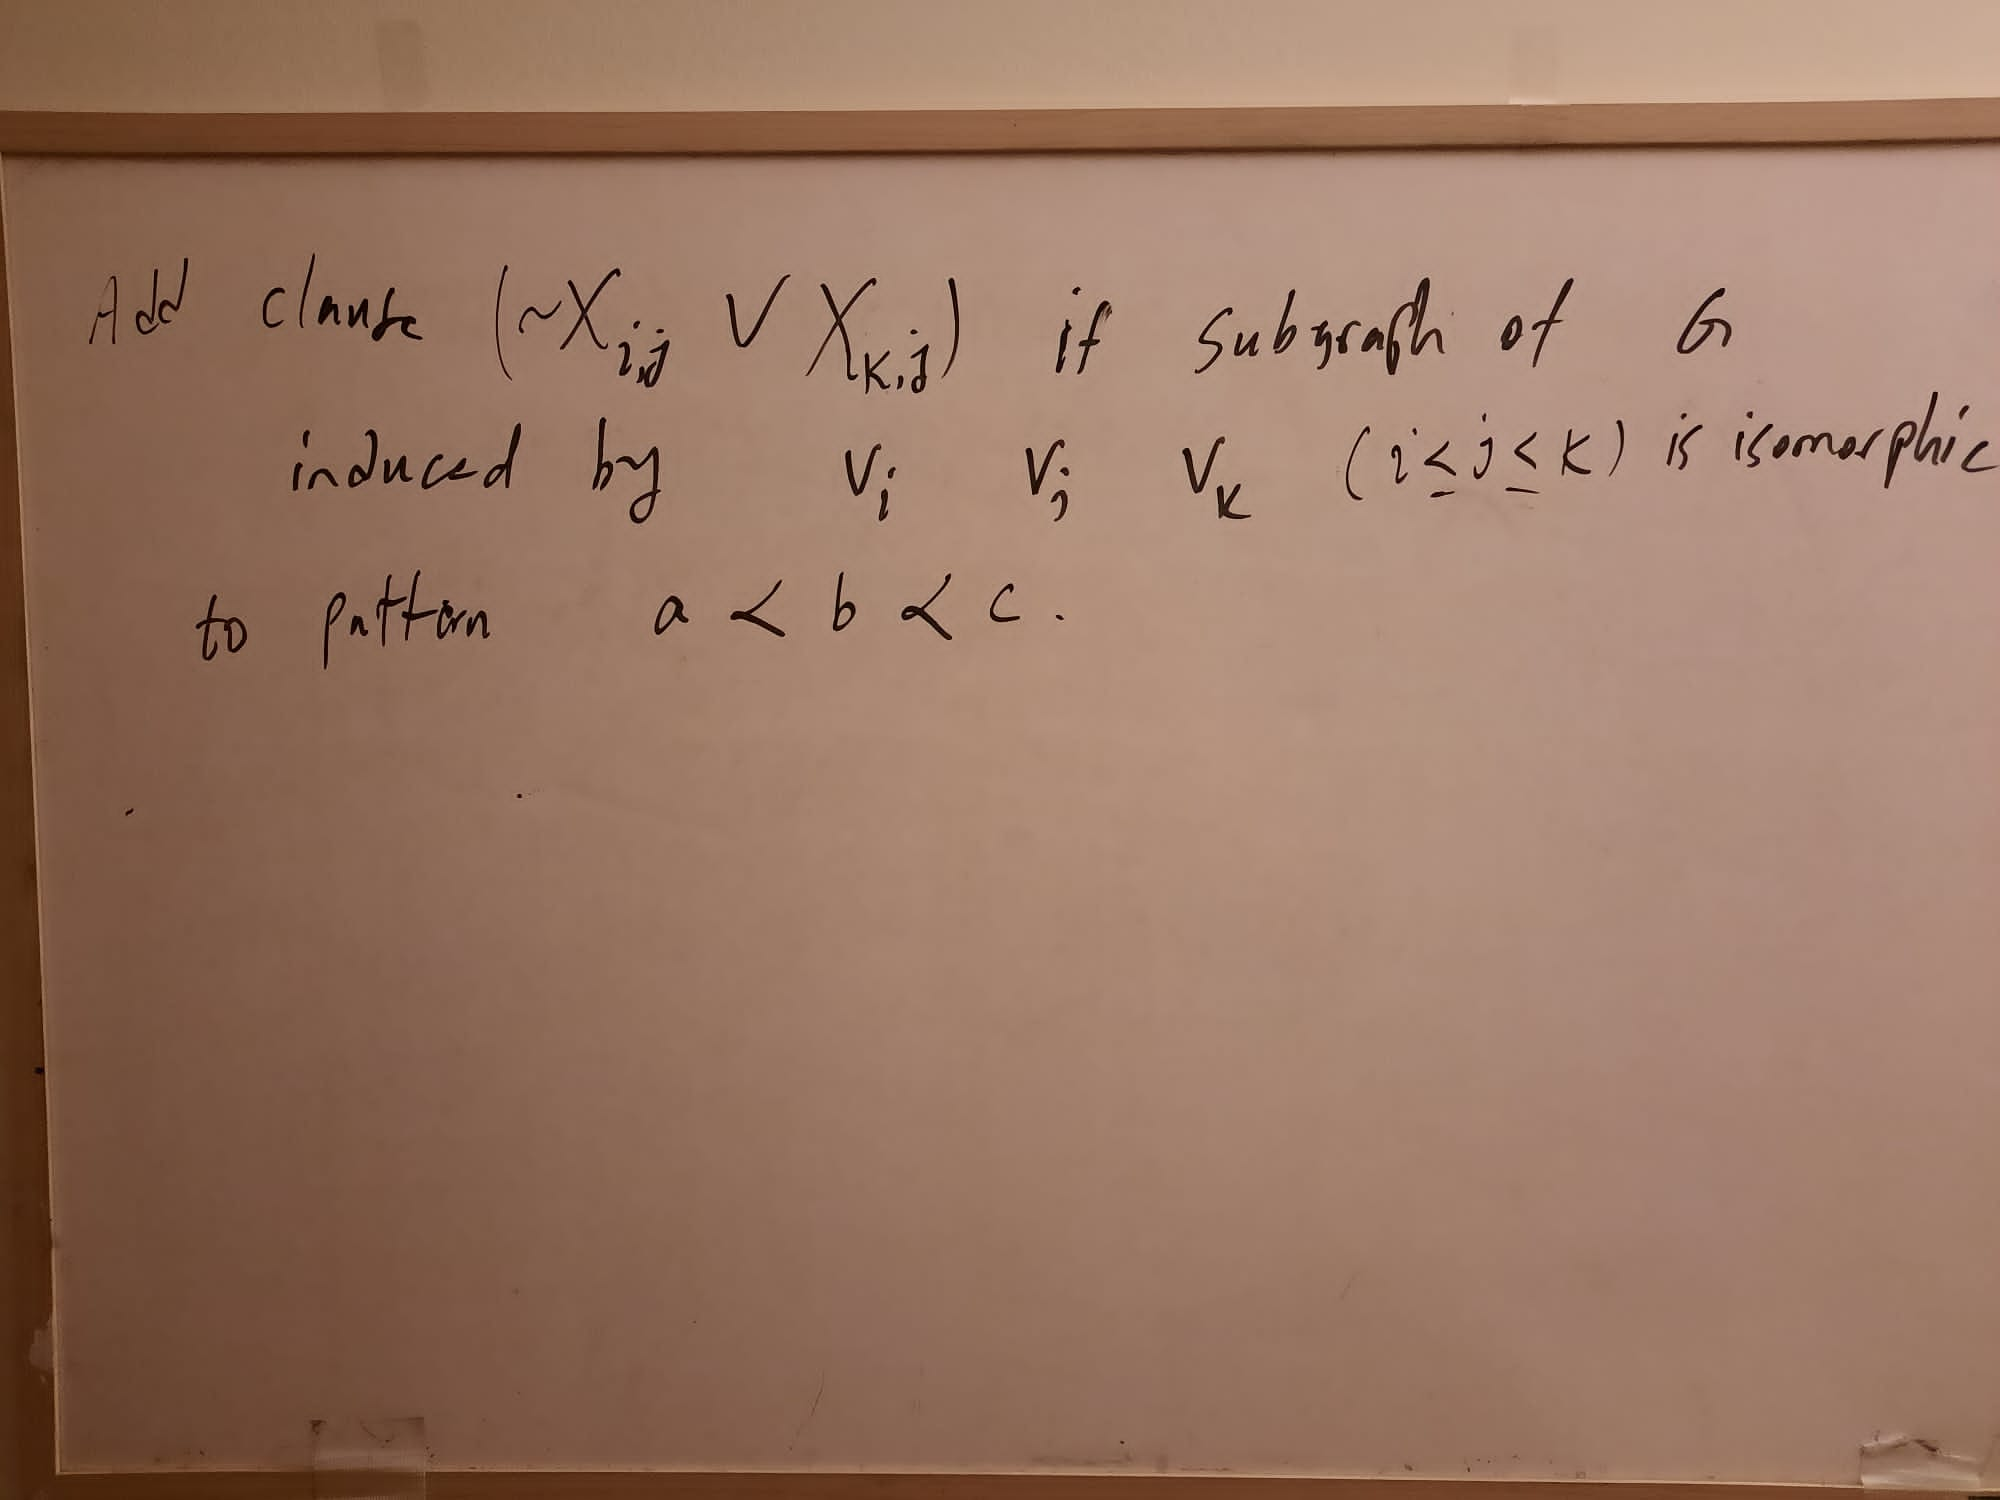 Add clause (~X i,j V X k,j) if subgraph of G
induced by Vi Vj VK (i ≤ j ≤ K) is isomorphic
to pattern a < b < c.